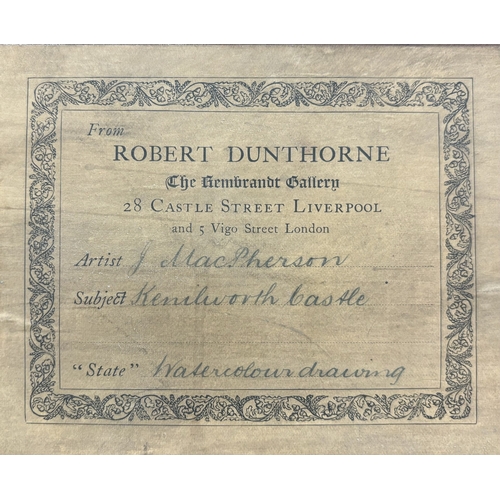 From
ROBERT DUNTHORNE
The Rembrandt Gallery
28 CASTLE STREET LIVERPOOL
and 5 Vigo Street London
Artist J MacPherson
Subject Kenilworth Castle
"State" Watercolour drawing